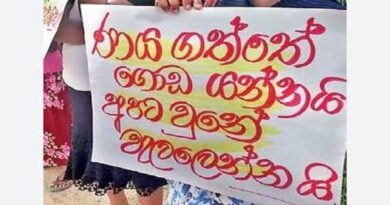 ණය ගත්තේ
ගොඩ යන්නයි
අපට වුනේ
වැලලෙන්න යි